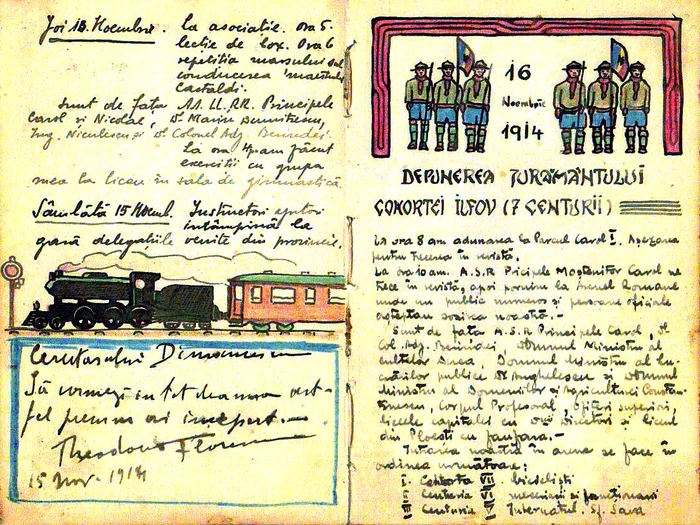 Joi 13. Noembrie. la asociatie. Ora 5.
lectie de box. Ora 6
repetitia marsului sub
conducerea maestrului
Castaldi.
Sunt de fata AA. LL. RR. Principele
Carol si Nicolae, Dl Marin Dumitrescu,
Ing. Niculescu si Dl Colonel Adj. Berindei.
La ora 4 p.am facut
exercitii cu grupa
mea la liceu in sala de gimnastică.
Sâmbătă 15 Noemb. Instructori ajutori
întâmpină la
gară delegatiile venite din provincie.
Cercetasului Dimancescu
Să urmezi in tot deauna ast-
fel precum ai inceput.
Theodor Florescu
15 Nov. 1914
16
Noembrie
1914
DEPUNEREA JURĂMÂNTULUI
COHORTEI ILFOV (7 CENTURII)
La ora 8 am adunarea la Parcul Carol I. Asezarea
pentru trecerea în revistă.
La ora 10 am. A.S.R Pricipele Moştenitor Carol ne
trece în revistă, apoi pornim la Arenel Romane
unde un public numeros si persoane oficiale
aşteptau sosirea noastră.-
Sunt de fata A.S.R Principele Carol, Dl.
Col. Adj. Berindei, Domnul Ministru al
cultelor Duca, Domnul Ministru al lu-
crărilor publice Dr Anghelescu si Domnul
Ministru al Domeniilor si Agriculturei Constan-
tinescu, corpul Profesoral, ofiteri superiori,
liceele capitalei cu Directori si liceul
din Ploesti cu fanfara.-
Intrarea noastră în arena se face în
ordinea următoare:
I. Cohorta VII biciclişti
II Centuria VI meseriasi si functionari
III Centuria V Internatul. Sf. Sava